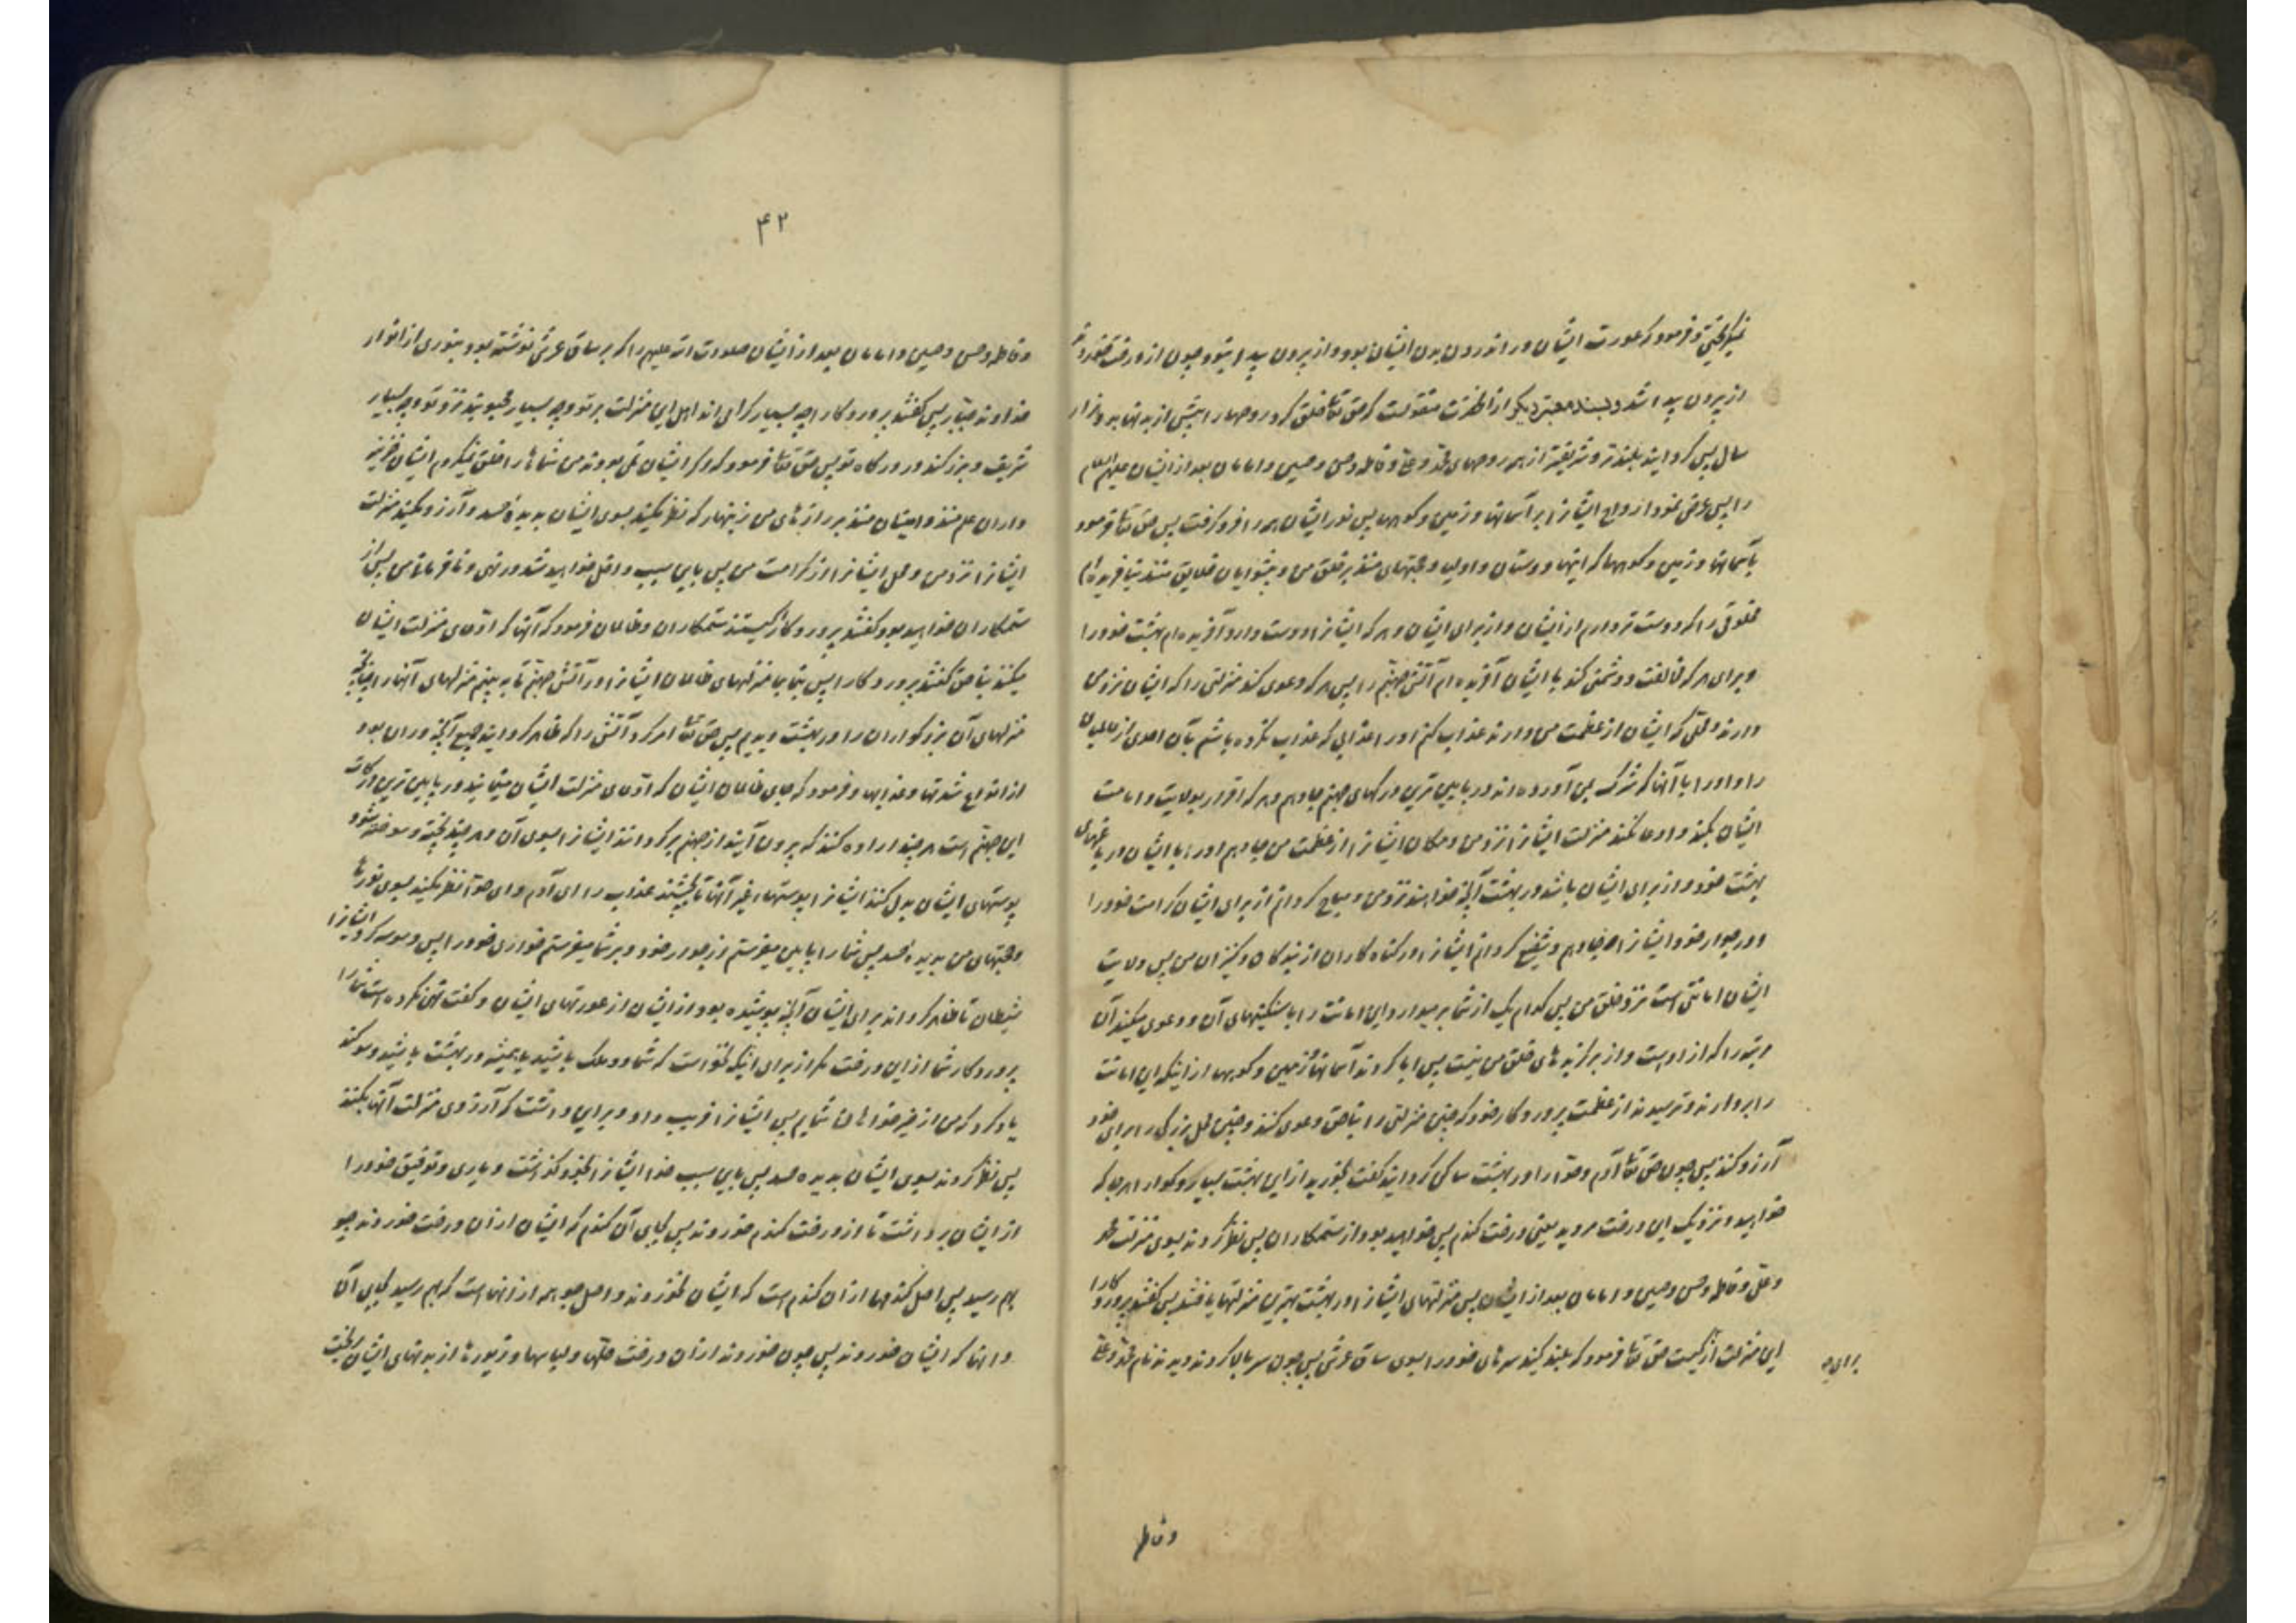 نمیگریختی و فرمود که عورت ایشان در اندرون بدن ایشان بود و از بیرون پیدا نبود و چون از درخت خوردند
از بیرون پیدا شد و بسند معتبر دیگر از آنحضرت منقولست که حق تعالی خلق کرد روحها را پیش از بدنها بدو هزار
سال پس گردانید بلندتر و شریفتر از همه روحهای محمد و علی و فاطمه و حسن و حسین و امامان بعد از ایشان علیهم السلام
را پس عرض نمود ارواح ایشانرا بر آسمانها و زمین و کوهها پس نور ایشان همه را فرو گرفت پس حق تعالی فرمود
بآسمانها و زمین و کوهها که اینها دوستان و اولیا و حجتهای منند بر خلق من و پیشوایان خلایق منند نیافریده‌ام
مخلوقی را که دوست تر دارم از ایشان و از برای ایشان و هر که ایشانرا دوست دارد آفریده‌ام بهشت خود را
و برای هر که مخالفت و دشمنی کند با ایشان آفریده‌ام آتش جهنم را پس هر که دعوی کند منزلتی را که ایشان نزد من
دارند و محلی که ایشان از عظمت من دارند عذاب کنم او را عذابی که عذاب نکرده باشم بآن احدی از عالمیان
را و او را با آنها که شرک بمن آورده‌اند در پایین ترین درکهای جهنم جا دهم و هر که اقرار بولایت و امامت
ایشان بکند و ادعا نکند منزلت ایشانرا نزد من و مکان ایشانرا از عظمت من جا دهم او را با ایشان در باغهای
بهشت خود و از برای ایشان باشد در بهشت آنچه خواهند نزد من و مباح گردانم از برای ایشان کرامت خود را
و در جوار خود ایشانرا جا دهم و شفیع گردانم ایشانرا در گناه کاران از بندگان و کنیزان من پس ولایت
ایشان امانتی است نزد خلق من پس کدام یک از شما بر میدارد این امانت را با سنگینیهای آن و دعوی میکند آن
مرتبه را که از اوست و از برگزیده‌های خلق من نیست پس ابا کردند آسمانها و زمین و کوهها از اینکه این امانت
را بردارند و ترسیدند از عظمت پروردگار خود که چنین منزلتی را بناحق دعوی کنند و چنین محل بزرگی را برای خود
آرزو کنند پس چون حق تعالی آدم و حوا را در بهشت ساکن گردانید گفت بخورید از این بهشت بسیار و گوارا هر جا که
خواهید و نزدیک این درخت مروید یعنی درخت گندم پس خواهید بود از ستمکاران پس نظر کردند بسوی منزلت محمد
و علی و فاطمه و حسن و حسین و امامان بعد از ایشان پس منزلتهای ایشانرا در بهشت بهترین منزلتها یافتند پس گفتند پروردگارا
این منزلت از برای کیست حق تعالی فرمود که بلند کنید سرهای خود را بسوی ساق عرش پس چون سر بالا کردند دیدند نام محمد و علی
و فاطمه
۴۲
و فاطمه و حسن و حسین و امامان بعد از ایشان صلوات الله علیهم را که بر ساق عرش نوشته بود بنوری از انوار
خداوند جبار پس گفتند پروردگارا چه بسیار گرامی‌اند اهل این منزلت بر تو و چه بسیار محبوبند نزد تو و چه بسیار
شریف و بزرگند در درگاه تو پس حق تعالی فرمود که اگر ایشان نمی بودند من شما را خلق نمیکردم ایشان خزینه
داران علم منند و امینان منند بر رازهای من زینهار که نظر مکنید بسوی ایشان بدیده حسد و آرزو مکنید منزلت
ایشانرا نزد من و محل ایشانرا از کرامت من پس باین سبب داخل خواهید شد در نهی و نافرمانی من پس از
ستمکاران خواهید بود گفتند پروردگارا کیستند ستمکاران و ظالمان فرمود که آنها که ادعای منزلت ایشان
میکنند بناحق گفتند پروردگارا پس بنما بما منزلهای ظالمان ایشانرا در آتش جهنم تا ببینیم منزلهای آنها را چنانچه
منزلهای آن بزرگواران را در بهشت دیدیم پس حق تعالی امر کرد آتش را که ظاهر گردانید جمیع آنچه در آن بود
از انواع شدتها و عذابها و فرمود که جای ظالمان ایشان که ادعای منزلت ایشان مینمایند در پایین ترین درکات
این جهنم است هر چند اراده کنند که بیرون آیند از جهنم برگردانند ایشانرا بسوی آن و هر چند پخته و سوخته شود
پوستهای ایشان بدل کنند ایشانرا پوستها غیر آنها تا بچشند عذاب را ای آدم و ای حوا نظر مکنید بسوی نورها
و حجتهای من بدیده حسد پس شما را پایین میفرستم از جوار خود و بر شما میفرستم خواری خود را پس وسوسه کرد ایشانرا
شیطان تا ظاهر گرداند برای ایشان آنچه پوشیده بود از ایشان از عورتهای ایشان و گفت نهی نکرده است شما را
پروردگار شما از این درخت مگر از برای اینکه نخواست که شما دو ملک باشید یا همیشه در بهشت باشید و سوگند
یاد کرد که من از خیرخواهان شمایم پس ایشانرا فریب داد و بر این داشت که آرزوی منزلت آنها بکنند
پس نظر کردند بسوی ایشان بدیده حسد پس باین سبب خدا ایشانرا بخود گذاشت و یاری و توفیق خود را
از ایشان برداشت تا از درخت گندم خوردند پس بجای آن گندم که ایشان از آن درخت خوردند جو
بهم رسید پس اصل گندمها از آن گندم است که ایشان نخوردند و اصل جو همه از آنهاست که بهم رسید بجای آن
دانها که ایشان خوردند پس چون خوردند از آن درخت حلّها و لباسها و زیورها از بدنهای ایشان ریخت